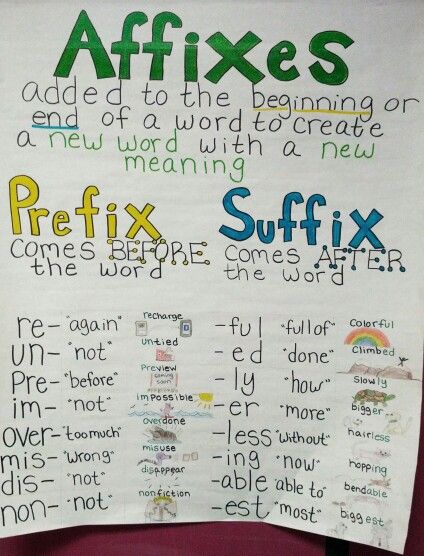 Affixes
added to the beginning or
end of a word to create
a new word with a new
meaning
Prefix
comes BEFORE
the word
re- "again" recharge
un- "not" untied
Pre- "before" preview
coming
soon
im- "not" impossible
over- "too much" overdone
mis- "wrong" misuse
dis- "not" disappear
non- "not" nonfiction
Suffix
comes AFTER
the word
-ful "full of" colorful
-ed "done" climbed
-ly "how" slowly
-er "more" bigger
-less "without" hairless
-ing "now" hopping
-able "able to" bendable
-est "most" biggest